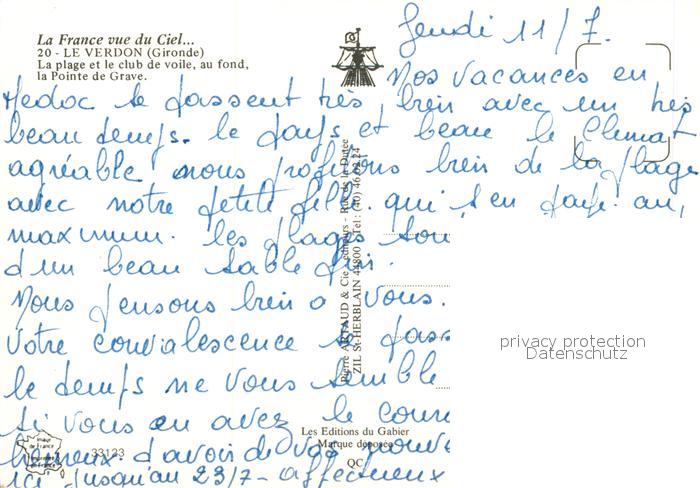 La France vue du Ciel...
20 - LE VERDON (Gironde)
La plage et le club de voile, au fond,
la Pointe de Grave.
Jeudi 11/7.
Nos vacances en
Medoc se passent très bien avec un très
beau temps. le pays et beau le Climat
agréable nous profitons bien de la plage
avec notre petite fille. qui s'en paye au,
maximum. les plages sont
d'un beau sable fin.
Nous pensons bien a Vous.
Votre convalescence se pass
le temps ne Vous semble
si vous en avez le cour
heureux d'avoir de vos nouve
ici jusqu'au 23/7 - affectueux
Pierre ARTAUD & Cie - éditeurs - Rue de la Dutée
ZIL St-HERBLAIN 44800 - Tel : (40) 46 02 24
privacy protection
Datenschutz
33123
Les Editions du Gabier
Marque déposée
QC